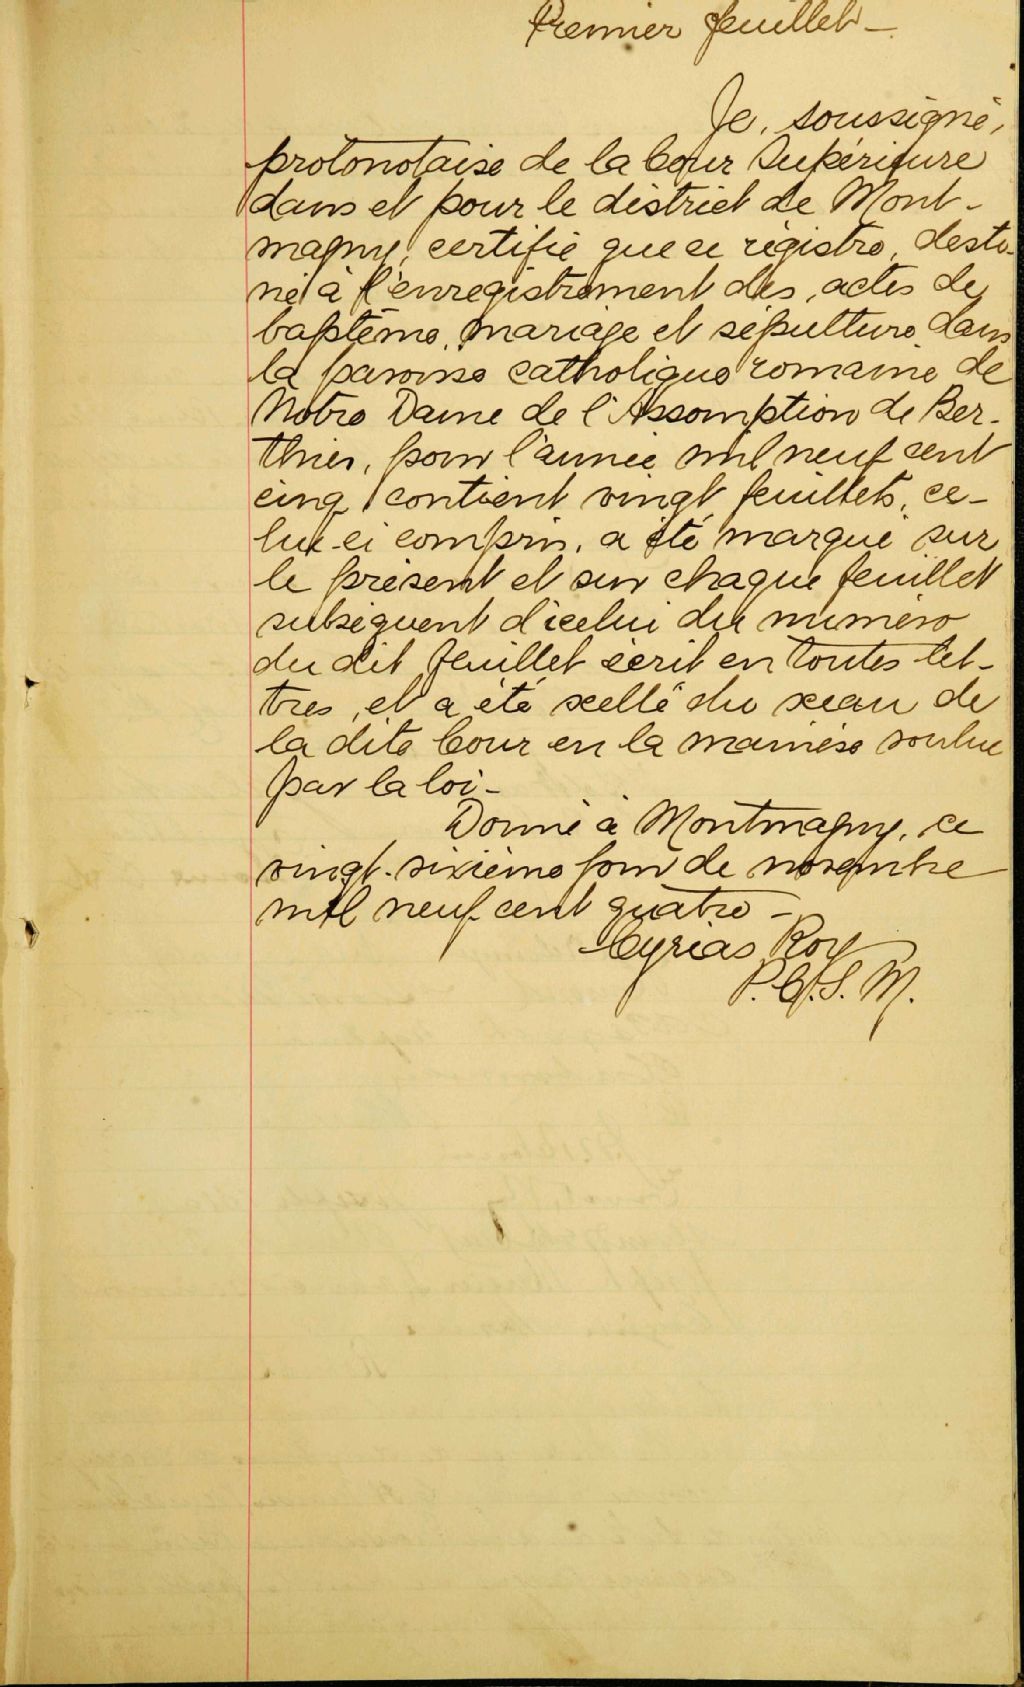 Premier feuillet —
Je, soussigné,
protonotaire de la Cour Supérieure
dans et pour le district de Mont-
magny, certifie que ce régistre, desti-
né à l'enregistrement des actes de
baptême, mariage et sépulture dans
la paroisse catholique romaine de
Notre Dame de l'Assomption de Ber-
thier, pour l'année mil neuf cent
cinq, contient vingt feuillets, ce-
lui-ci compris, a été marqué sur
le présent et sur chaque feuillet
subséquent d'icelui du numéro
du dit feuillet écrit en toutes let-
tres, et a été scellé du sceau de
la dite Cour en la manière voulue
par la loi —
Donné à Montmagny, ce
vingt-sixième jour de novembre
mil neuf cent quatre —
Cyrias Roy
P.C.S.M.